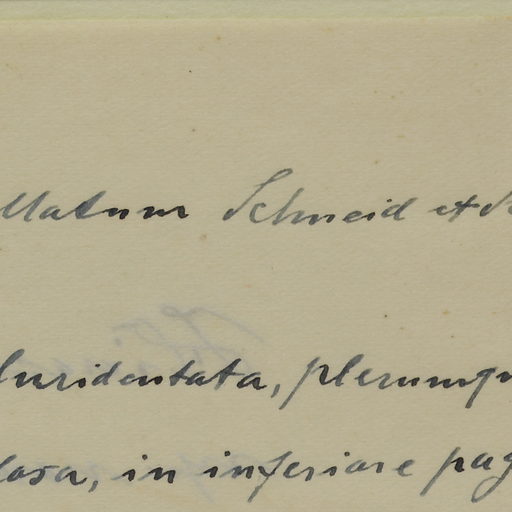 llatum Schneid et S
luridentata, plerumqu
losa, in inferiore pag